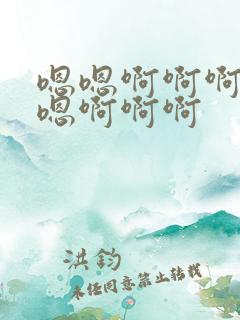 嗯嗯啊啊啊
嗯啊啊啊
洪钧
未经同意禁止转载